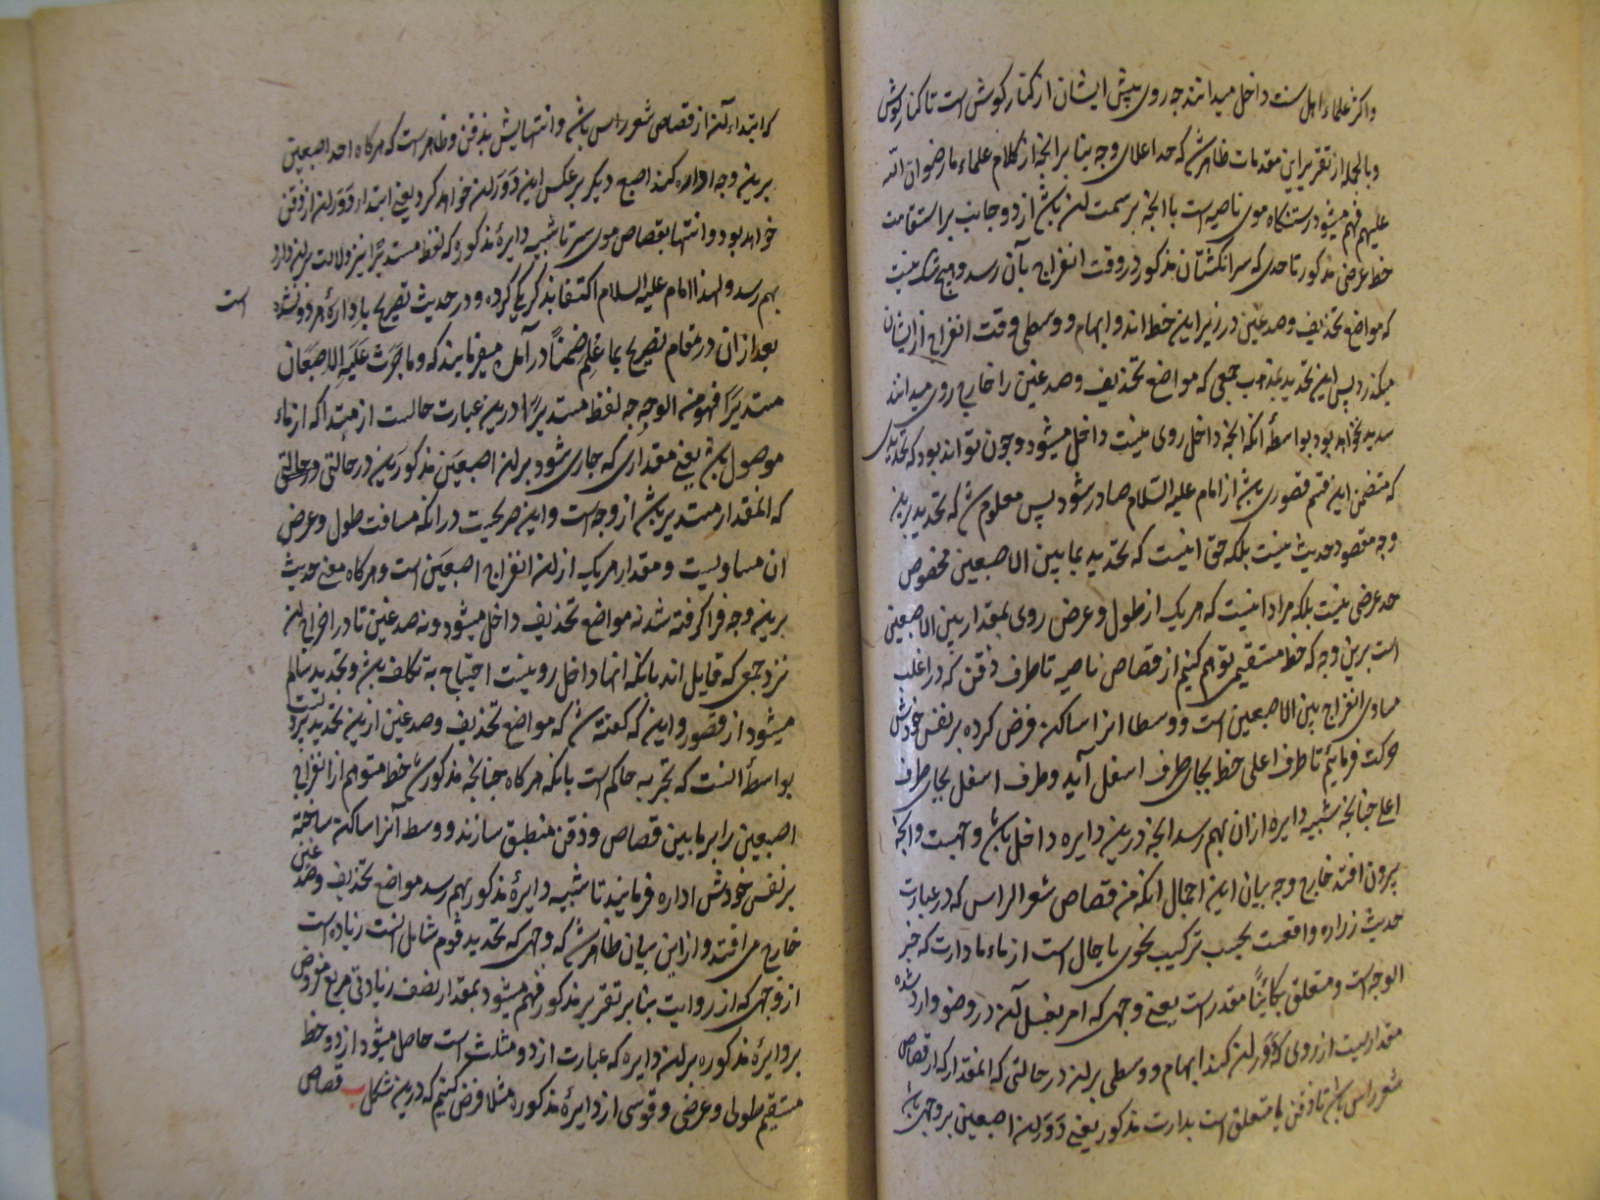 واکثر علماء اهل سنت داخل میدانند چه روی پیش ایشان از کنار کوش است تا کنار کوش
وبالجمله از تقریر این مقدمات ظاهر شد که حد اعلای وجه بنا بر آنچه از کلام علماء ما رضوان الله
علیهم فهم میشود رستنگاه موی ناصیه است با آنچه بر سمت آن باشد از دو جانب بر استقامت
خط عرضی مذکور تا حدی که سر انکشتان مذکور در وقت انفراج بآن رسد و هیچ شک نیست
که مواضع تحذیف و صدغین در زیر این خط اند و ابهام و وسطی وقت انفراج از ایشان
میکذرد پس این تحدید بمذهب جمعی که مواضع تحذیف و صدغین را خارج روی میدانند
سدید نخواهد بود بواسطهٔ آنکه آنچه داخل روی نیست داخل میشود و چون تواند بود که تحدیدی
که متضمن این قسم قصوری باشد از امام علیه السلام صادر شود پس معلوم شد که تحدید برین
وجه مقصود حدیث نیست بلکه حق اینست که تحدید بما بین الاصبعین مخصوص
حد عرضی نیست بلکه مراد اینست که هریک از طول و عرض روی بمقدار بین الاصبعین
است برین وجه که خط مستقیمی توهم کنیم از قصاص ناصیه تا طرف ذقن که در اغلب
مساوی انفراج بین الاصبعین است و وسط آنرا ساکن فرض کرده بر نفس خودش
حرکت فرمائیم تا طرف اعلی خط بجای طرف اسفل آید و طرف اسفل بجای طرف
اعلی چنانچه شبیه دایره از آن بهم رسد آنچه درین دایره داخل باشد وجهست و آنچه
بیرون افتد خارج وجه بیان این اجمال آنکه من قصاص شعر الراس که در عبارت
حدیث زراره واقعست بحسب ترکیب نحوی یا حال است از ماء ما دارت که خبر
الوجه است و متعلق بکائناً مقدر است یعنی وجهی که امر بغسل آن در وضو وارد شده
مقداریست از روی که دَوَران کند ابهام و وسطی بر آن در حالتی که آنمقدار که از قصاص
شعر راس باشد تا ذقن یا متعلق است بدارت مذکور یعنی دَوَران اصبعین بر وجهی باشد
که ابتداء آن از قصاص شعر راس باشد و انتهایش بذقن و ظاهر است که هرکاه احد اصبعین
برین وجه اداره کند اصبع دیکر بر عکس این دَوَران خواهد کرد یعنی ابتداء دَوَران از ذقن
خواهد بود و انتها بقصاص موی سر تا شبیه دایرهٔ مذکوره که لفظ مستدیرًا نیز دلالت بر آن دارد
بهم رسد ولهذا امام علیه السلام اکتفا بذکر یکی کرده و در حدیث تصریح باِدارهٔ هر دو نشده
است
بعد از آن در مقام تصریح بما عُلِم ضمنًا در آمده میفرمایند که وما جَرَت عَلَیهِ الاِصبَعان
مستدیرًا فهو من الوجه چه لفظ مستدیرًا درین عبارت حالست از مبتدا که از ماء
موصول باشد یعنی مقداری که جاری شود بر آن اصبعَین مذکورَین در حالتی
که آنمقدار مستدیر باشد از وجه است و این صریحست در آنکه مسافت طول و عرض
آن مساویست و مقدارِ هریک از آن انفراج اصبعَین است و هرکاه معنی حدیث
برین وجه فرا کرفته شد نه مواضع تحذیف داخل میشود و نه صدغین تا در اخراج آن
نزد جمعی که قایل اند بآنکه آنها داخل رو نیست احتیاج به تکلف باشد و تحدید سالم
میشود از قصور و این که کفته شد که مواضع تحذیف و صدغین ازین تحدید بیرونست
بواسطهٔ آنست که تجربه حاکم است بآنکه هرکاه چنانچه مذکور شد خط متوهم از انفراج
اصبعین را بر ما بین قصاص و ذقن منطبق سازند و وسط آنرا ساکن ساخته
بر نفس خودش اداره فرمایند تا شبیه دایرهٔ مذکور بهم رسد مواضع تحذیف و صدغین
خارج می افتد و از این بیان ظاهر شد که وجهی که تحدید قوم شامل آنست زیاده است
از وجهی که از روایت بنا بر تقریر مذکور فهم میشود بمقدار نصف زیادتی مربع مفروض
بر دایرهٔ مذکوره بر آن دایره که عبارت از دو مثلث است حاصل میشود از دو خط
مستقیم طولی و عرضی و قوسی از دایرهٔ مذکوره مثلا فرض کنیم که درین شکل ب قصاص